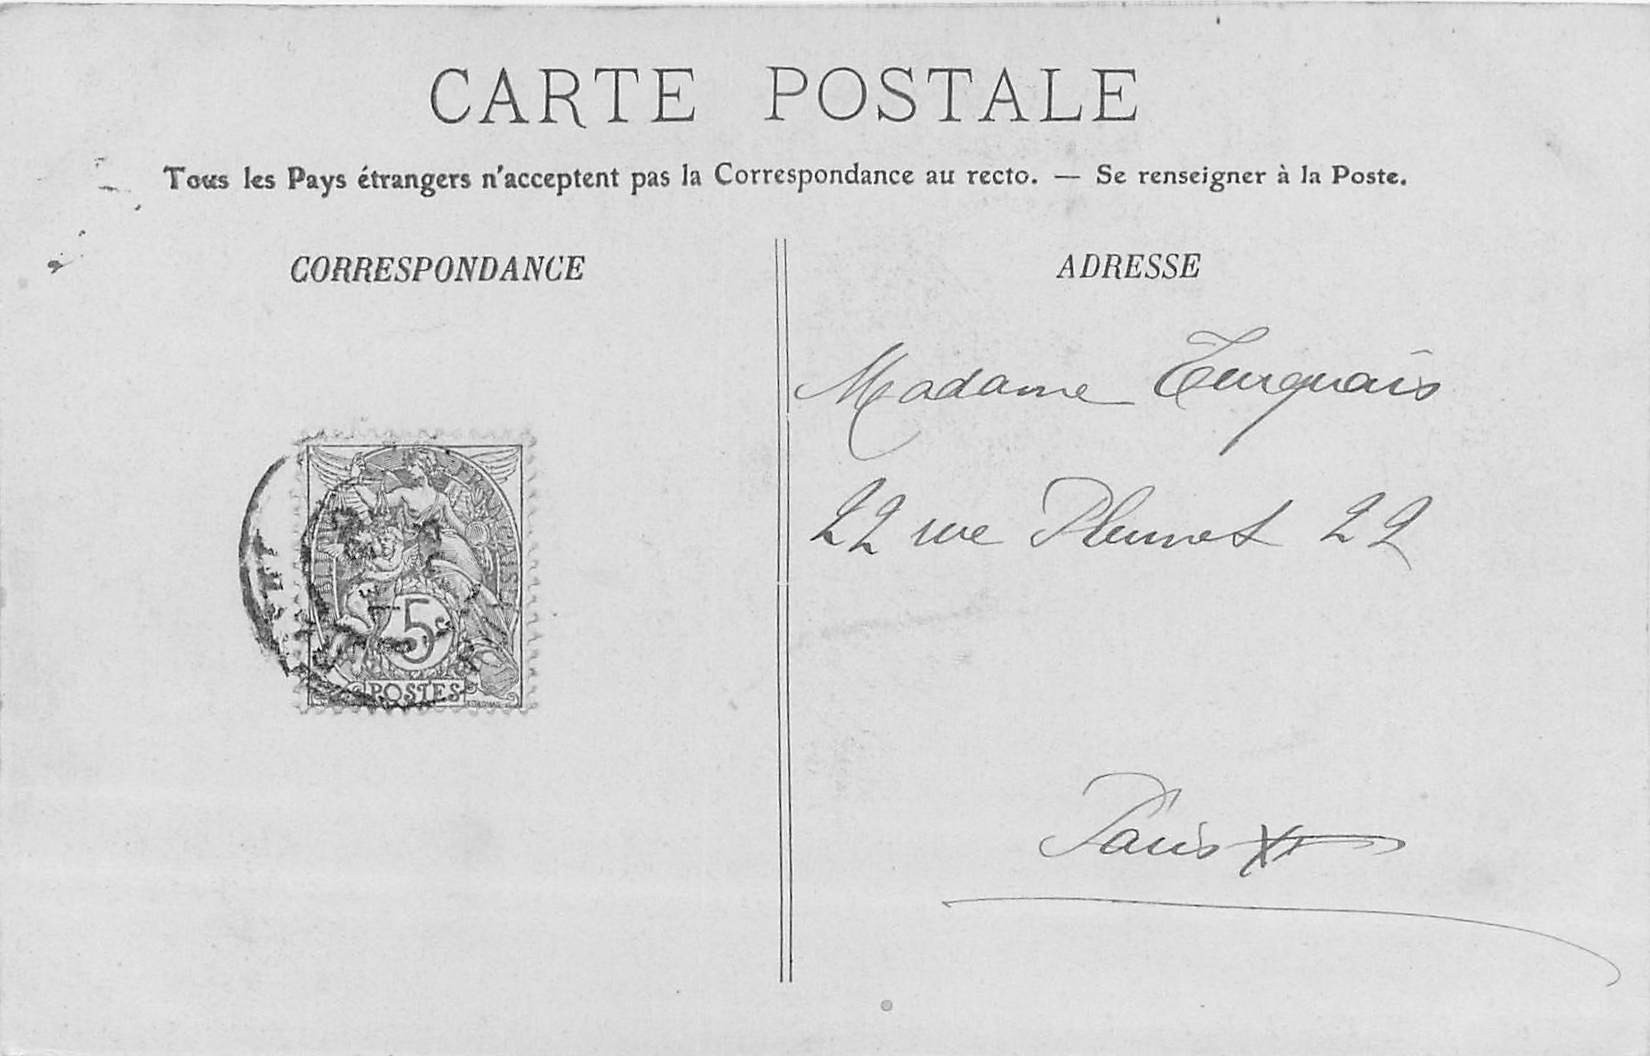 CARTE POSTALE
Tous les Pays étrangers n'acceptent pas la Correspondance au recto. — Se renseigner à la Poste.
CORRESPONDANCE
ADRESSE
Madame Turquais
22 rue Plumet 22
5c
POSTES
Paris